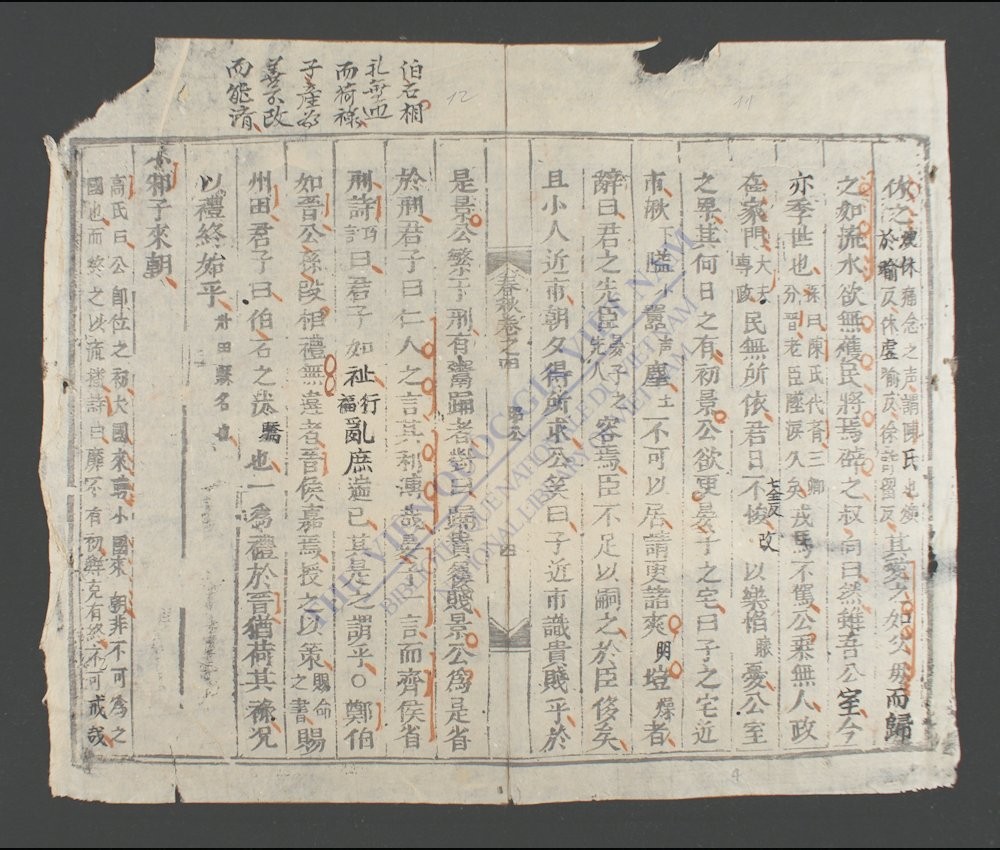 伯石相
礼無疵
而荷祿
子產為
善不改
而能済
12
11
休之於喻反休虛喻反徐許留反其愛之如父母而歸
之如流水欲無獲民將焉辟之叔向曰然雖吾公室今
亦季世也戎馬不駕公乗無人政
在家門大夫專政民無所依君日不悛七全反改以樂慆藏憂公室
之卑其何日之有初景公欲更晏子之宅曰子之宅近
市湫下隘小囂声塵土不可以居請更諸爽明塏燥者
辭曰君之先臣晏子之先人容焉臣不足以嗣之於臣侈矣
且小人近市朝夕得所求公笑曰子近市識貴賤乎於
春秋卷之四
昭公
四
是景公繁于刑有鬻踊者對曰踊貴屨賤景公為是省
於刑君子曰仁人之言其利溥哉晏子一言而齊侯省
刑詩曰君子如祉行福亂庶遄已其是之謂乎○鄭伯
如晉公孫段相禮無違者晉侯嘉焉授之以策賜命之書賜
州田君子曰伯石之汰驕也一為禮於晉猶荷其祿况
以禮終始乎州田縣名也
小邾子來朝
高氏曰公即位之初大國來聘小國來朝非不可為之
國也而終之以流播詩曰靡不有初鮮克有終不可戒哉
THƯ VIỆN QUỐC GIA VIỆT NAM
BIBLIOTHÈQUE NATIONALE DU VIETNAM
NATIONAL LIBRARY OF VIETNAM